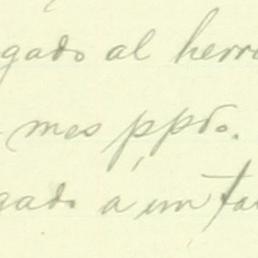 gado al herre
mes ppdo.
gado a un ta